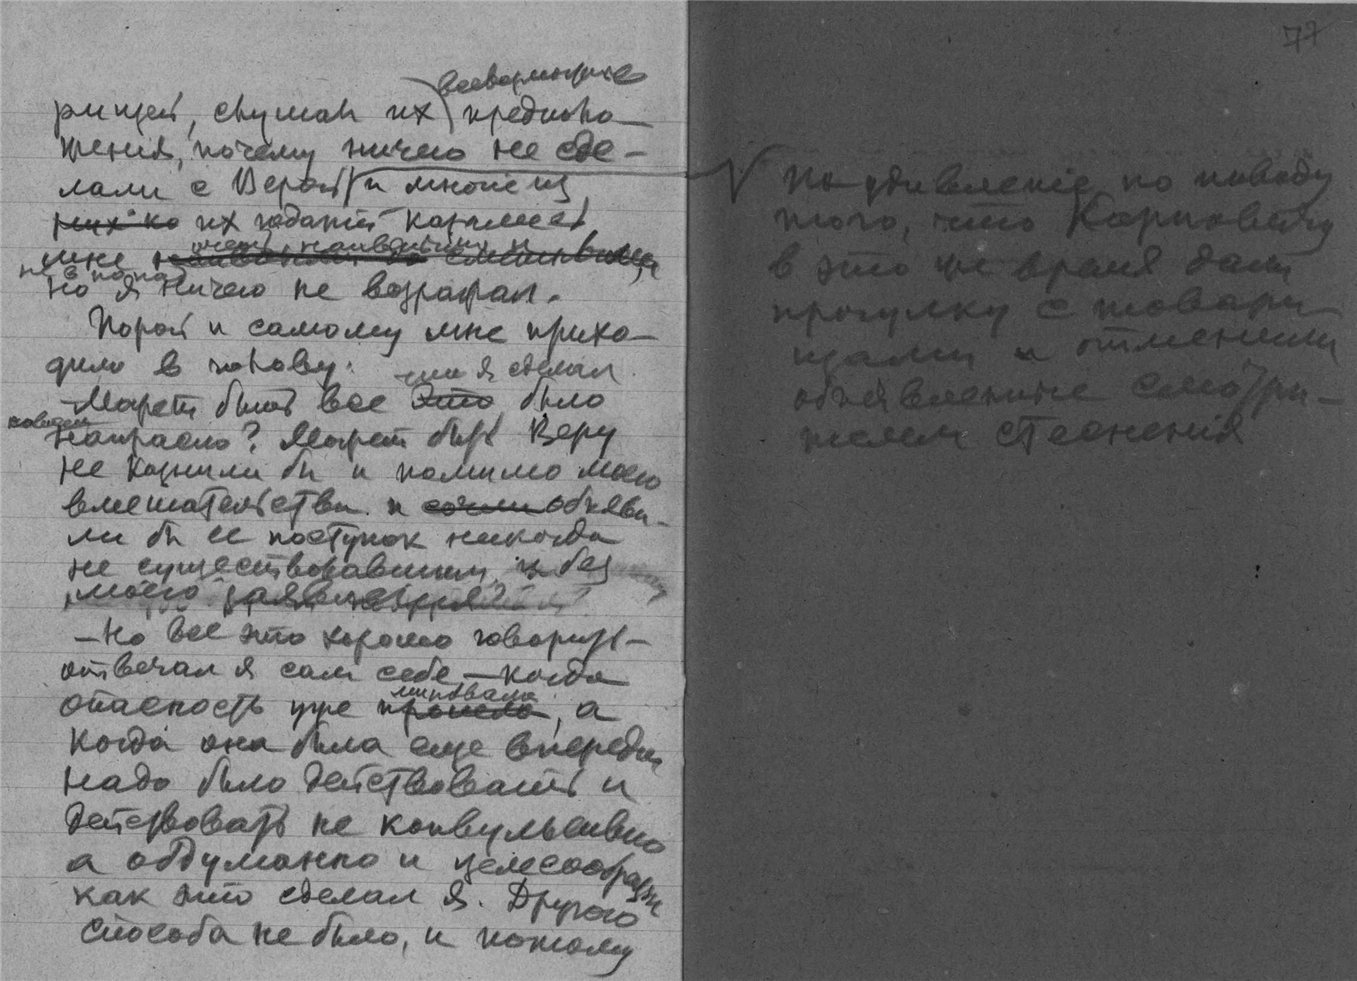 всевозможные
рищей, слушал их предполо-
жения, почему ничего не сде-
лали с Верой и многие из
них ко их гаданий казались
мне очень наивными и
не в попад
но я ничего не возражал.
Порой и самому мне прихо-
дило в голову: что я сделал
— Может быть все это было
совсем
напрасно? Может быть Веру
не казнили бы и помимо моего
вмешательства и сочли объяви-
ли бы ее поступок никогда
не существовавшим и без
моего заявления?
— Но все это хорошо говорить —
отвечал я сам себе — когда
миновала
опасность уже прошла, а
когда она была еще впереди
надо было действовать и
действовать не конвульсивно
а обдуманно и целесообразно
как это сделал я. Другого
способа не было, и потому
77
На удивление по поводу
того, что Карповичу
в это же время дали
прогулку с товари-
щами и отменили
объявленные смотри-
телем стеснения